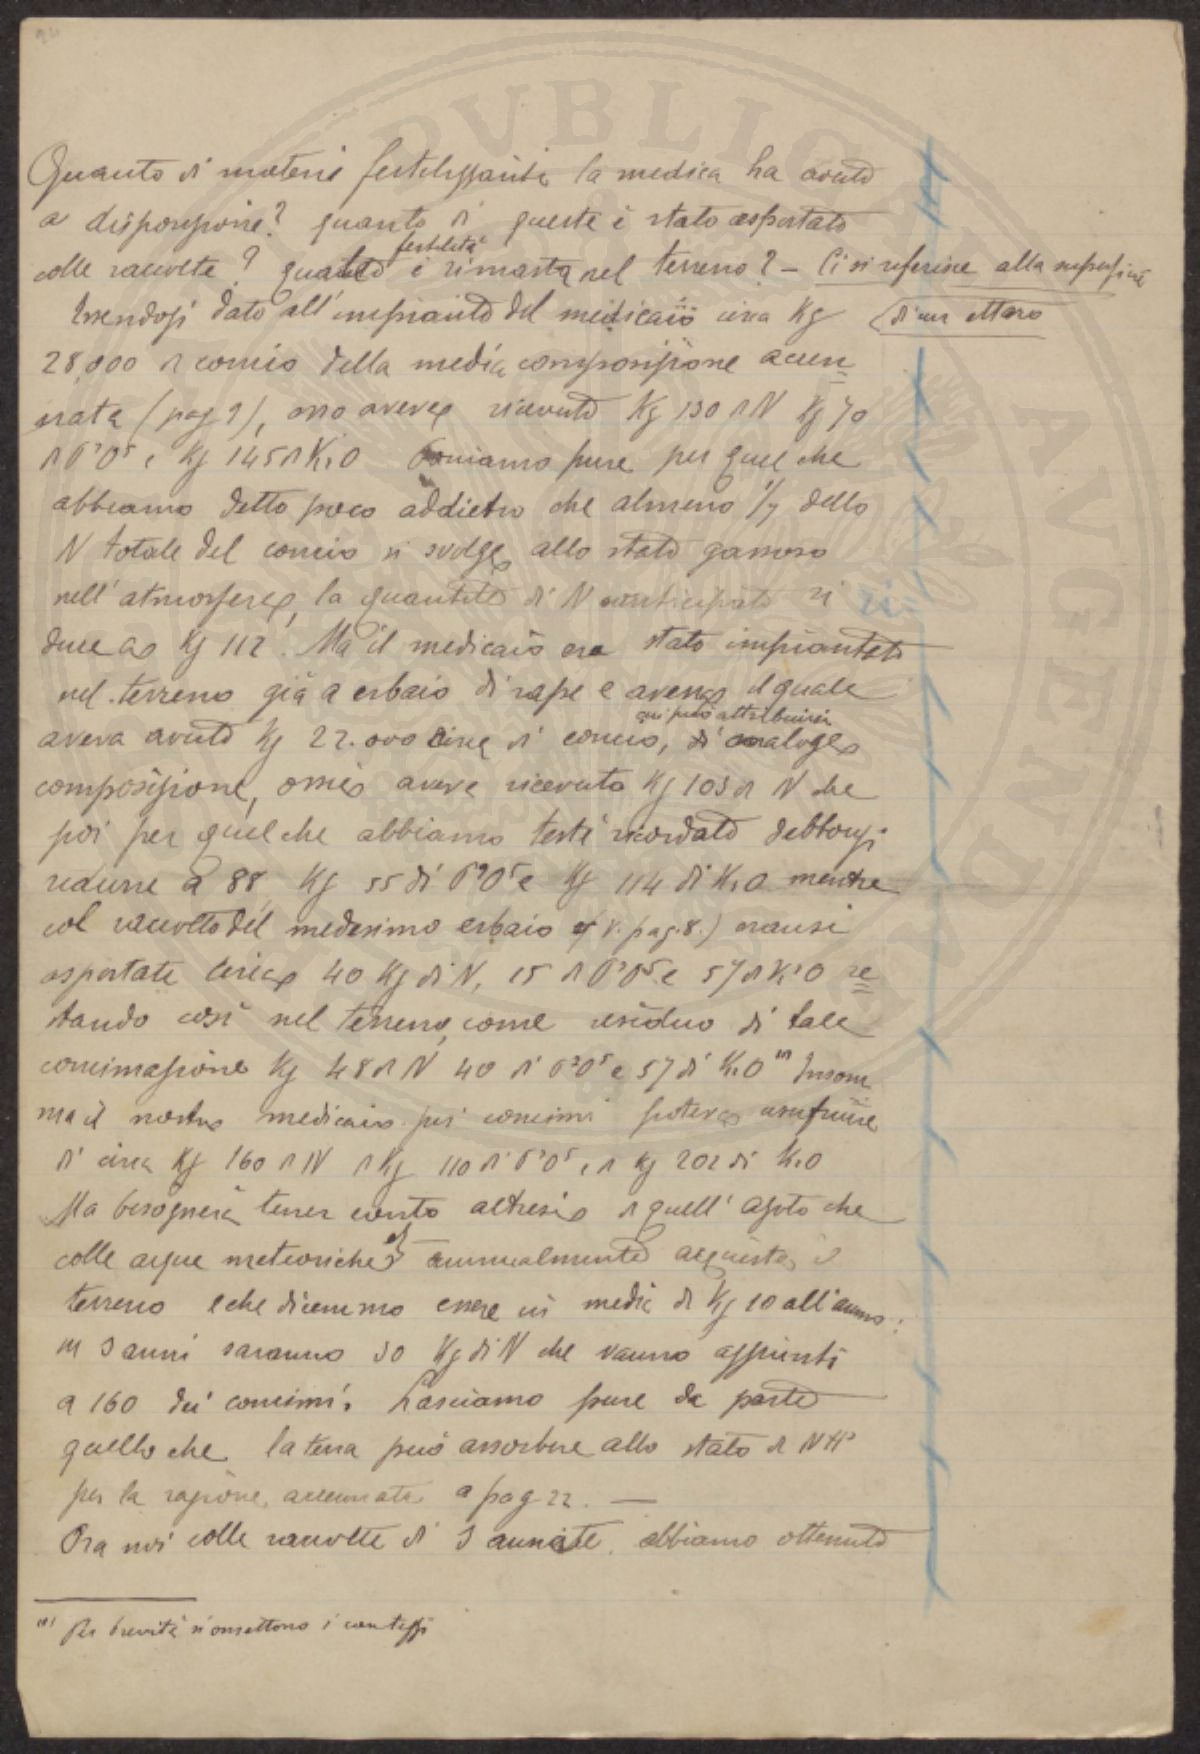 Quanto di materie fertilizzanti la medica ha avuto
a disposizione? quanto di queste è stato asportato
colle raccolte? quanta fertilità è rimasta nel terreno? - Ci si riferisce alla superficie
di un ettaro
Essendosi dato all'impianto del medicaio circa Kg
28,000 di concio della media composizione accen
nata (pag 9), esso aveva ricevuto Kg 130 di N Kg 70
di P²O⁵ e Kg 145 di K2O Poniamo pure per quel che
abbiamo detto poco addietro che almeno 1/7 dello
N totale del concio si svolga allo stato gassoso
nell'atmosfera, la quantità di N si ri
duce a Kg 112. Ma il medicaio era stato impiantato
nel terreno già a erbaio di rape e avena il quale
aveva avuto Kg 22.000 circa di concio, cui può attribuirsi analoga
composizione, ossia aveva ricevuto Kg 103 di N che
poi per quel che abbiamo testè ricordato debbonsi
ridurre a 88, Kg 55 di P²O⁵ e Kg 114 di K2O mentre
col raccolto del medesimo erbaio (V. pag. 8.) eransi
asportate circa 40 Kg di N, 15 di P²O⁵ e 57 di K²O re
stando così nel terreno come residuo di tale
concimazione Kg 48 di N 40 di P²O⁵ e 57 di K2O (1) Insom
ma il nostro medicaio per concimi poteva usufruire
di circa Kg 160 di N di Kg 110 di P²O⁵, e di Kg 202 di K2O
Ma bisognerà tener conto altresì di quell'azoto che
colle acque meteoriche annualmente acquista il
terreno e che dicemmo essere in media di Kg 10 all'anno:
in 3 anni saranno 30 Kg di N che vanno aggiunti
a 160 dei concimi. Lasciamo pure da parte
quello che la terra può assorbire allo stato di NH³
per la ragione, accennata a pag 22. —
Ora noi colle raccolte di 3 annate, abbiamo ottenuto
(1) Per brevità si omettono i conteggi